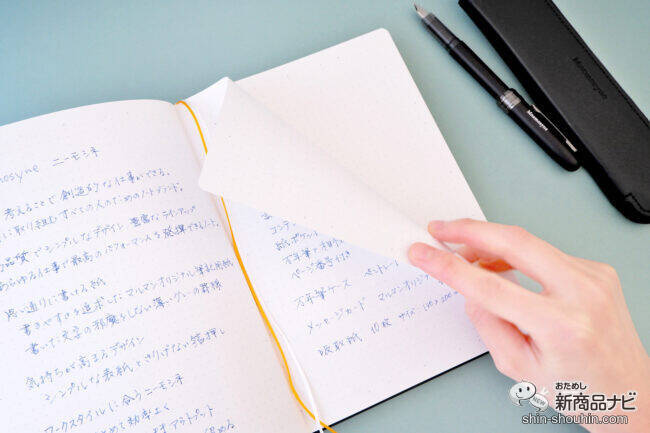 nosyne ニーモシネ
考えることで創造的な仕事ができる、
に取り組むすべての人のためのノートブランド。
品質でシンプルなデザイン 豊富なラインアップ
あらゆる仕事で最高のパフォーマンスを発揮できるノート。
思い通りに書ける紙
書きやすさを追求したマルマンオリジナル筆記用紙
書いた文字の邪魔をしない薄いグレーの罫線
気持ちが高まるデザイン
シンプルな表紙とさりげない箔押し
ワークスタイルに合うニーモシネ
とめて効率よく
アウトプット
コンテン
紙ポケット
万年筆
ページ番号付き
万年筆ケース
メッセージカード マルマンオリジ
吸取紙 10枚 サイズ
Mnemosyne
Mnemosyne
おためし
新商品ナビ
NEW
shin-shouhin.com